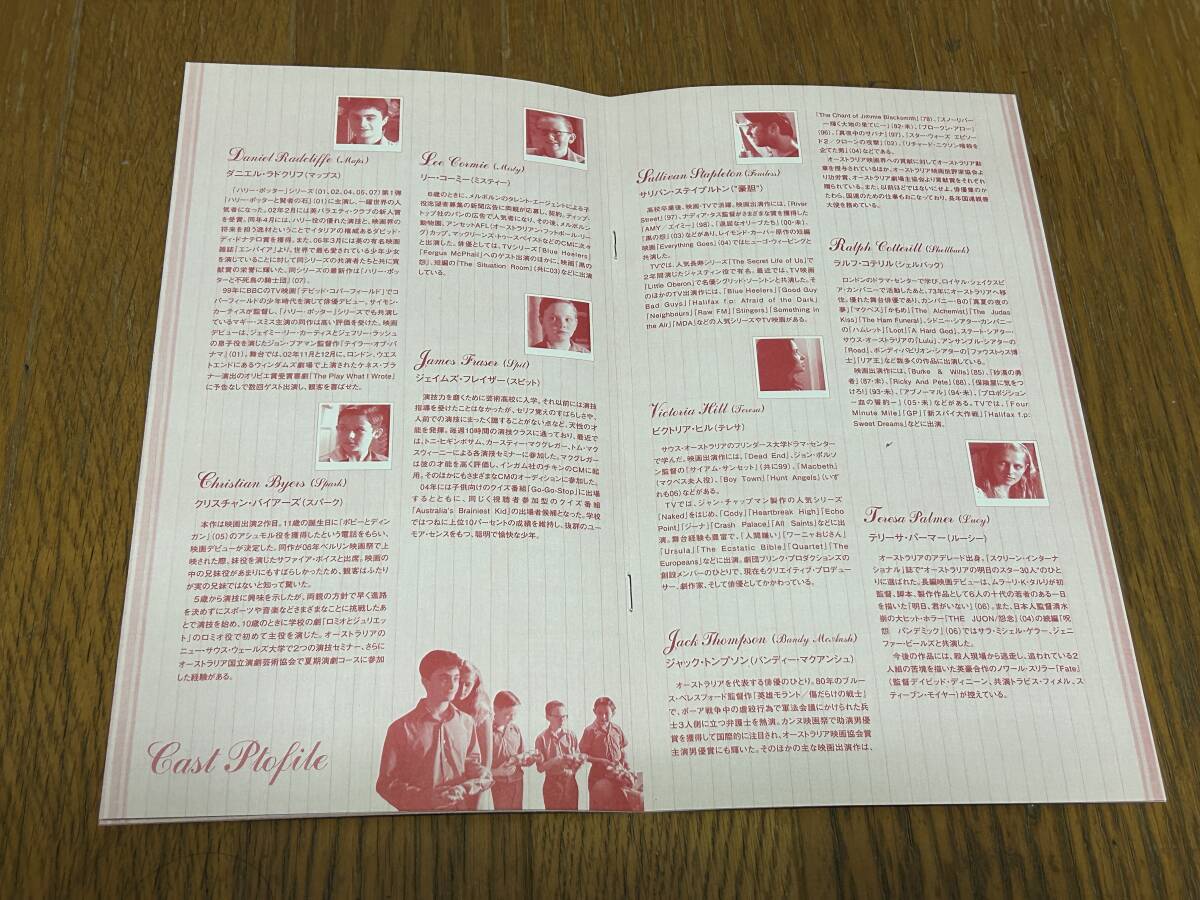 Daniel Radcliffe (Maps)
ダニエル・ラドクリフ(マップス)
「ハリー・ポッター」シリーズ(01、02、04、05、07)第1弾
『ハリー・ポッターと賢者の石』(01)に主演し、一躍世界の人
気者になった。02年2月には英バラエティ・クラブの新人賞
を受賞。同年4月には、ハリー役の優れた演技と、映画界の
将来を担う逸材ということでイタリアの権威あるダビッド・
ディ・ドナテロ賞を獲得。また、06年3月には英の有名映画
雑誌『エンパイア』より、世界で最も愛されている少年少女
を演じていることに対して同シリーズの共演者たちと共に貢
献賞の栄誉に輝いた。同シリーズの最新作は『ハリー・ポッ
ターと不死鳥の騎士団』(07)。
99年にBBCのTV映画『デビッド・コパーフィールド』でコ
パーフィールドの少年時代を演じて俳優デビュー。サイモン・
カーティスが監督し、「ハリー・ポッター」シリーズでも共演し
ているマギー・スミス主演の同作は高い評価を受けた。映画
デビューは、ジェイミー・リー・カーティスとジェフリー・ラッシュ
の息子役を演じたジョン・ブアマン監督作『テイラー・オブ・パ
ナマ』(01)。舞台では、02年11月と12月に、ロンドン、ウエス
トエンドにあるウィンダムズ劇場で上演されたケネス・ブラ
ナー演出のオリビエ賞受賞喜劇「The Play What I Wrote」
に予告なしで数回ゲスト出演し、観客を喜ばせた。
Christian Byers (Spark)
クリスチャン・バイアーズ(スパーク)
本作は映画出演2作目。11歳の誕生日に『ポビーとディン
ガン』(05)のアシュモル役を獲得したという電話をもらい、
映画デビューが決定した。同作が06年ベルリン映画祭で上
映された際、妹役を演じたサファイア・ボイスと出席。映画の
中の兄妹役があまりにもすばらしかったため、観客はふたり
が実の兄妹ではないと知って驚いた。
5歳から演技に興味を示したが、両親の方針で早く進路
を決めずにスポーツや音楽などさまざまなことに挑戦したあ
とで演技を始め、10歳のときに学校の劇「ロミオとジュリエッ
ト」のロミオ役で初めて主役を演じた。オーストラリアの
ニュー・サウス・ウェールズ大学で2つの演技セミナー、さらに
オーストラリア国立演劇芸術協会で夏期演劇コースに参加
した経験がある。
Cast Ptofile
Lee Cormie (Misty)
リー・コーミー(ミスティー)
6歳のときに、メルボルンのタレント・エージェントによる子
役志望者募集の新聞広告に両親が応募し、契約。ティップ・
トップ社のパンの広告で人気者になり、その後、メルボルン
動物園、アンセットAFL(オーストラリアン・フットボール・リー
グ)カップ、マックリーンズ・トゥースペイストなどのCMに次々
と出演した。俳優としては、TVシリーズ「Blue Heelers」
「Fergus McPhail」へのゲスト出演のほかに、映画『黒の
怨』、短編の『The Situation Room』(共に03)などに出演
している。
James Fraser (Spit)
ジェイムズ・フレイザー(スピット)
演技力を磨くために芸術高校に入学。それ以前には演技
指導を受けたことはなかったが、セリフ覚えのすばらしさや、
人前での演技にまったく臆することがない点など、天性の才
能を発揮。毎週10時間の演技クラスに通っており、最近で
は、トニ・ヒギンボサム、カースティー・マクグレガー、トム・マク
スウィーニーによる各演技セミナーに参加した。マクグレガー
は彼の才能を高く評価し、インガム社のチキンのCMに起
用。そのほかにもさまざまなCMのオーディションに参加した。
04年には子供向けのクイズ番組「Go-Go-Stop」に出場
するとともに、同じく視聴者参加型のクイズ番組
「Australia's Brainiest Kid」の出場者候補となった。学校
ではつねに上位10パーセントの成績を維持し、抜群のユー
モア・センスをもつ、聡明で愉快な少年。
Sullivan Stapleton (Fearless)
サリバン・ステイプルトン("豪胆")
高校卒業後、映画・TVで活躍。映画出演作には、『River
Street』(97)、ナディア・タス監督がさまざまな賞を獲得した
『AMY/エイミー』(98)、『退屈なオリーブたち』(00・未)、
『黒の怨』(03)などがあり、レイモンド・カーバー原作の短編
映画『Everything Goes』(04)ではヒューゴ・ウィービングと
共演した。
TVでは、人気長寿シリーズ「The Secret Life of Us」で
2年間演じたジャスティン役で有名。最近では、TV映画
『Little Oberon』で名優シグリッド・ソーントンと共演した。そ
のほかのTV出演作には、「Blue Heelers」「Good Guy
Bad Guys」「Halifax f.p: Afraid of the Dark」
「Neighbours」「Raw FM」「Stingers」「Something in
the Air」「MDA」などの人気シリーズやTV映画がある。
Victoria Hill (Teresa)
ビクトリア・ヒル(テレサ)
サウス・オーストラリアのフリンダース大学ドラマ・センター
で学んだ。映画出演作には、『Dead End』、ジョン・ポルソ
ン監督の『サイアム・サンセット』(共に99)、『Macbeth』
(マクベス夫人役)、『Boy Town』『Hunt Angels』(いず
れも06)などがある。
TVでは、ジャン・チャップマン製作の人気シリーズ
「Naked」をはじめ、「Cody」「Heartbreak High」「Echo
Point」「ジーナ」「Crash Palace」「All Saints」などに出
演。舞台経験も豊富で、「人間嫌い」「ワーニャおじさん」
「Ursula」「The Ecstatic Bible」「Quartet」「The
Europeans」などに出演。劇団ブリンク・プロダクションズの
創設メンバーのひとりで、現在もクリエイティブ・プロデュー
サー、劇作家、そして俳優としてかかわっている。
Jack Thompson (Bandy McAnsh)
ジャック・トンプソン(バンディー・マクアンシュ)
オーストラリアを代表する俳優のひとり。80年のブルー
ス・ベレスフォード監督作『英雄モラント/傷だらけの戦士』
で、ボーア戦争中の虐殺行為で軍法会議にかけられた兵
士3人側に立つ弁護士を熱演。カンヌ映画祭で助演男優
賞を獲得して国際的に注目され、オーストラリア映画協会賞
主演男優賞にも輝いた。そのほかの主な映画出演作は、
『The Chant of Jimmie Blacksmith』(78)、『スノーリバー
―輝く大地の果てに―』(92・未)、『ブロークン・アロー』
(96)、『真夜中のサバナ』(97)、『スター・ウォーズ エピソー
ド2/クローンの攻撃』(02)、『リチャード・ニクソン暗殺を
企てた男』(04)などである。
オーストラリア映画界への貢献に対してオーストラリア勲
章を授与されているほか、オーストラリア映画批評家協会よ
り功労賞、オーストラリア劇場主協会より貢献賞をそれぞれ
贈られている。また、以前ほどではないにせよ、俳優業のか
たわら、国連のための仕事もおこなっており、長年国連親善
大使を務めている。
Ralph Cotterill (Shellback)
ラルフ・コテリル(シェルバック)
ロンドンのドラマ・センターで学び、ロイヤル・シェイクスピ
ア・カンパニーで活動したあと、73年にオーストラリアへ移
住。優れた舞台俳優であり、カンパニーBの「真夏の夜の
夢」「マクベス」「かもめ」「The Alchemist」「The Judas
Kiss」「The Ham Funeral」、シドニー・シアター・カンパニー
の「ハムレット」「Loot」「A Hard God」、ステート・シアター・
サウス・オーストラリアの「Lulu」、アンサンブル・シアターの
「Road」、ボンディ・パビリオン・シアターの「ファウストゥス博
士」「リア王」など数多くの作品に出演している。
映画出演作には、『Burke & Wills』(85)、『砂漠の勇
者』(87・未)、『Ricky And Pete』(88)、『保険屋に気をつ
けろ!』(93・未)、『アブノーマル』(94・未)、『プロポジション
―血の誓約―』(05・未)などがある。TVでは、「Four
Minute Mile」「GP」「新スパイ大作戦」「Halifax f.p:
Sweet Dreams」などに出演。
Teresa Palmer (Lucy)
テリーサ・パーマー(ルーシー)
オーストラリアのアデレード出身。「スクリーン・インターナ
ショナル」誌で"オーストラリアの明日のスター30人"のひと
りに選ばれた。長編映画デビューは、ムラーリ・K・タルリが初
監督、脚本、製作作品として6人の十代の若者のある一日
を描いた『明日、君がいない』(06)。また、日本人監督清水
崇の大ヒット・ホラー『THE JUON/呪怨』(04)の続編『呪
怨 パンデミック』(06)ではサラ・ミシェル・ゲラー、ジェニ
ファー・ビールズと共演した。
今後の作品には、殺人現場から逃走し、追われている2
人組の苦境を描いた英豪合作のノワール・スリラー『Fate』
(監督デイビッド・ディニーン、共演トラビス・フィメル、ス
ティーブン・モイヤー)が控えている。